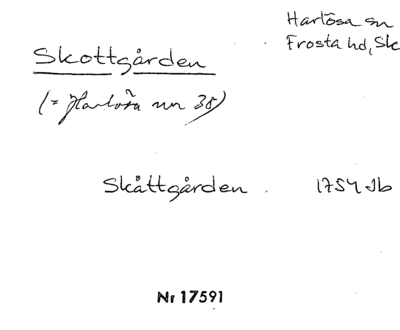 Harlösa sn
Frosta hd, Sk
Skottgården
(= Harlösa nr 38)
Skåttgården . 1754 Jb
Nr 17591